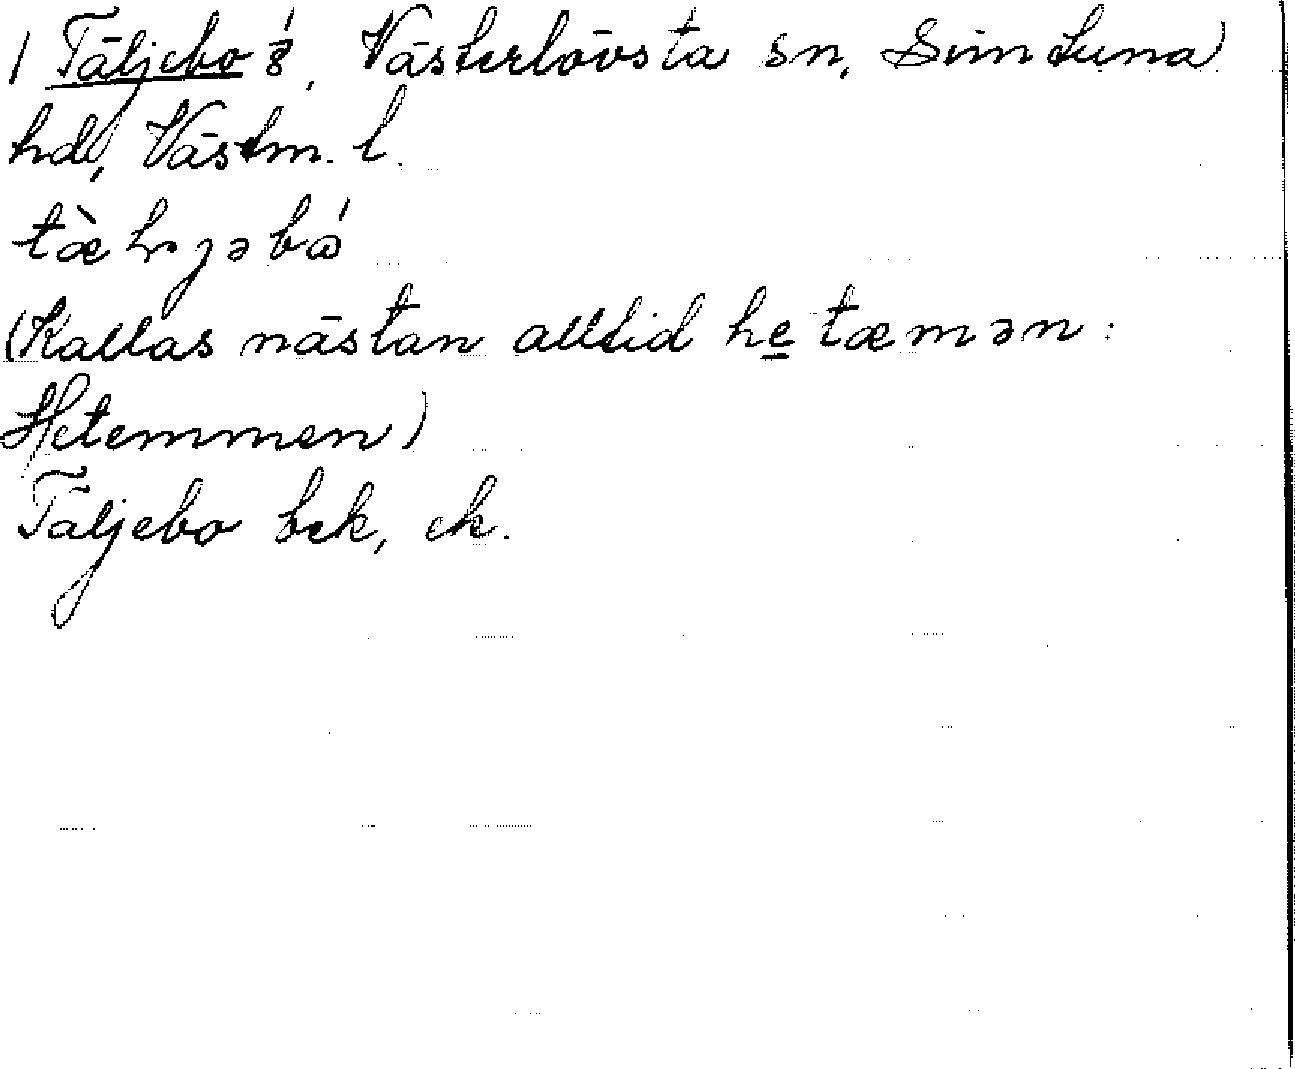 / Täljebo 1/8, Västerlövsta sn, Simtuna
hd, Västm. l.
(Kallas nästan alltid he̲tæmən:
Hetemmen)
Täljebo bek, ek.